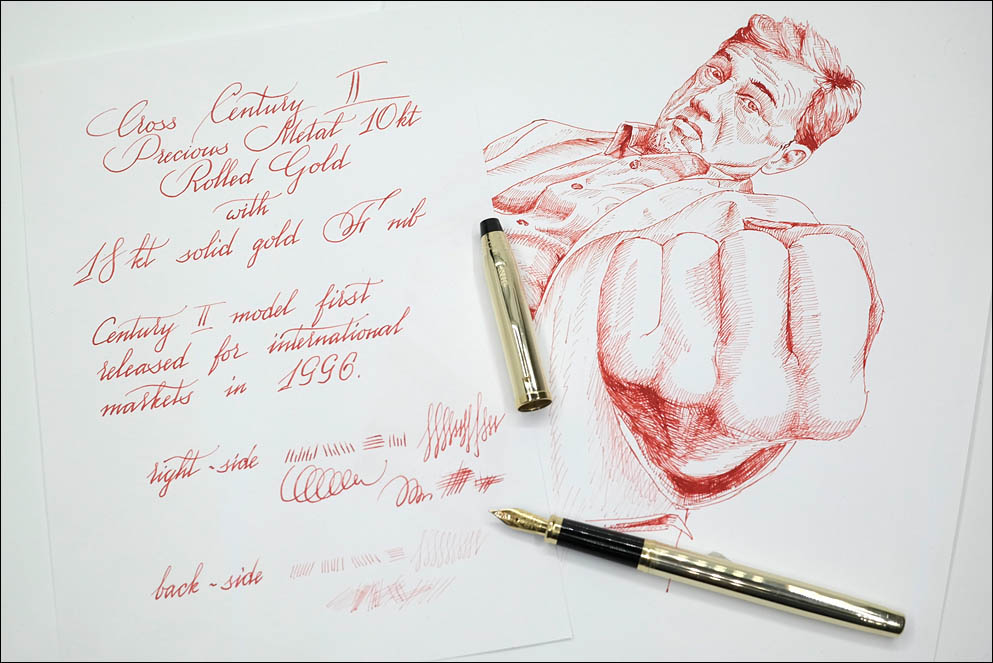 Cross Century II
Precious Metal 10kt
Rolled Gold
with
18 kt solid gold "F" nib
Century II model first
released for international
markets in 1996.
right-side
back-side